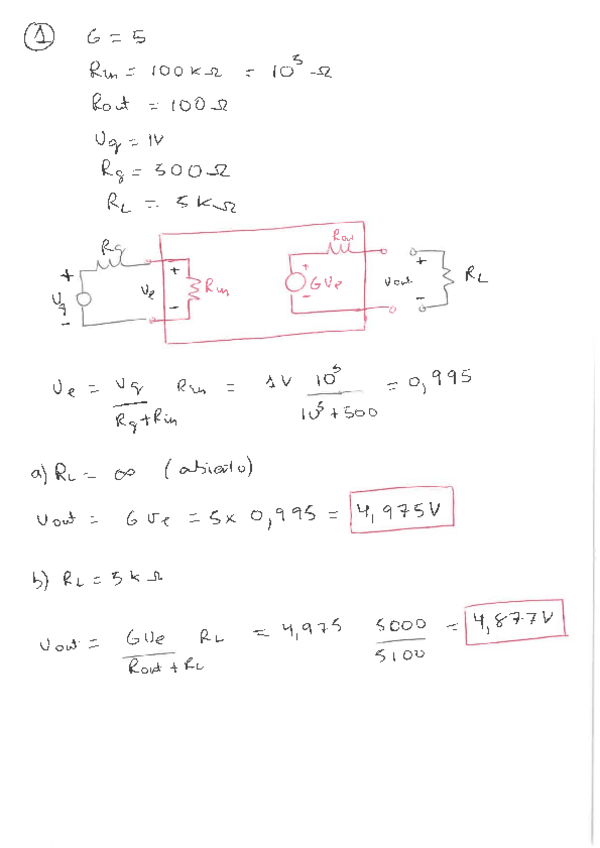 1 G = 5
Rin = 100 KΩ = 10⁵ Ω
Rout = 100 Ω
Vg = 1V
Rg = 500 Ω
RL = 5 KΩ
Rg
Rout
+ Vg -
+ Ve -
Rin
+ GVe -
+ Vout -
RL
Ve = Vg / (Rg + Rin) Rin = 1V 10⁵ / (10⁵ + 500) = 0,995
a) RL = ∞ (abierto)
Vout = G Ve = 5 x 0,995 = 4,975V
b) RL = 5 k Ω
Vout = GVe / (Rout + RL) RL = 4,975 5000 / 5100 = 4,877V